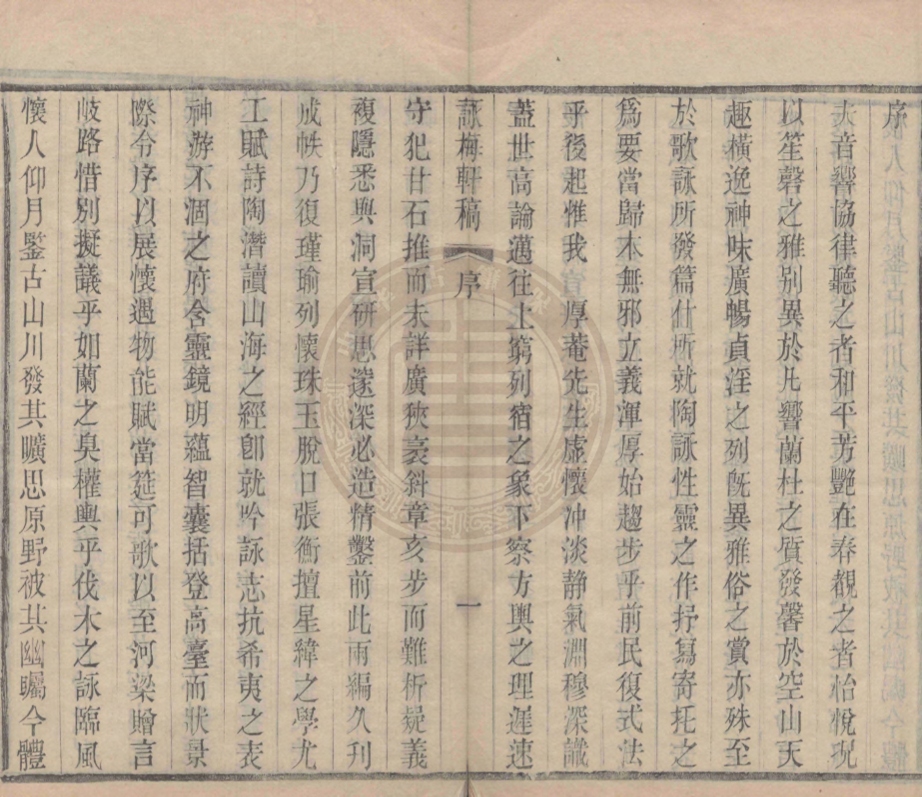 序
大音響協律聽之者和平芳艷在春覩之者怡悅況
以笙磬之雅別異於凡響蘭杜之質發馨於空山天
趣橫逸神味廣暢貞淫之列旣異雅俗之賞亦殊至
於歌詠所發篇什所就陶詠性靈之作抒寫寄托之
爲要當歸本無邪立義渾厚始趨步乎前民復式法
乎後起惟我 厚菴先生虛懷冲淡静氣淵穆深識
蓋世高論邁往上窮列宿之象不察方輿之理遲速
詠梅軒稿 序 一
守犯甘石推而未詳廣狹袤斜章亥步而難析疑義
複隱悉與洞宣硏思邃深必造精鑿前此雨編久刊
成帙乃復瑾瑜列懷珠玉脫口張衡擅星緯之學尤
工賦詩陶潛讀山海之經卽就吟詠志抗希夷之表
神游不涸之府含靈鏡明蘊智囊括登高臺而狀景
際令序以展懷遇物能賦當筵可歌以至河梁贈言
岐路惜別擬議乎如蘭之臭權輿乎伐木之詠臨風
懷人仰月鑒古山川發其曠思原野被其幽矚今體